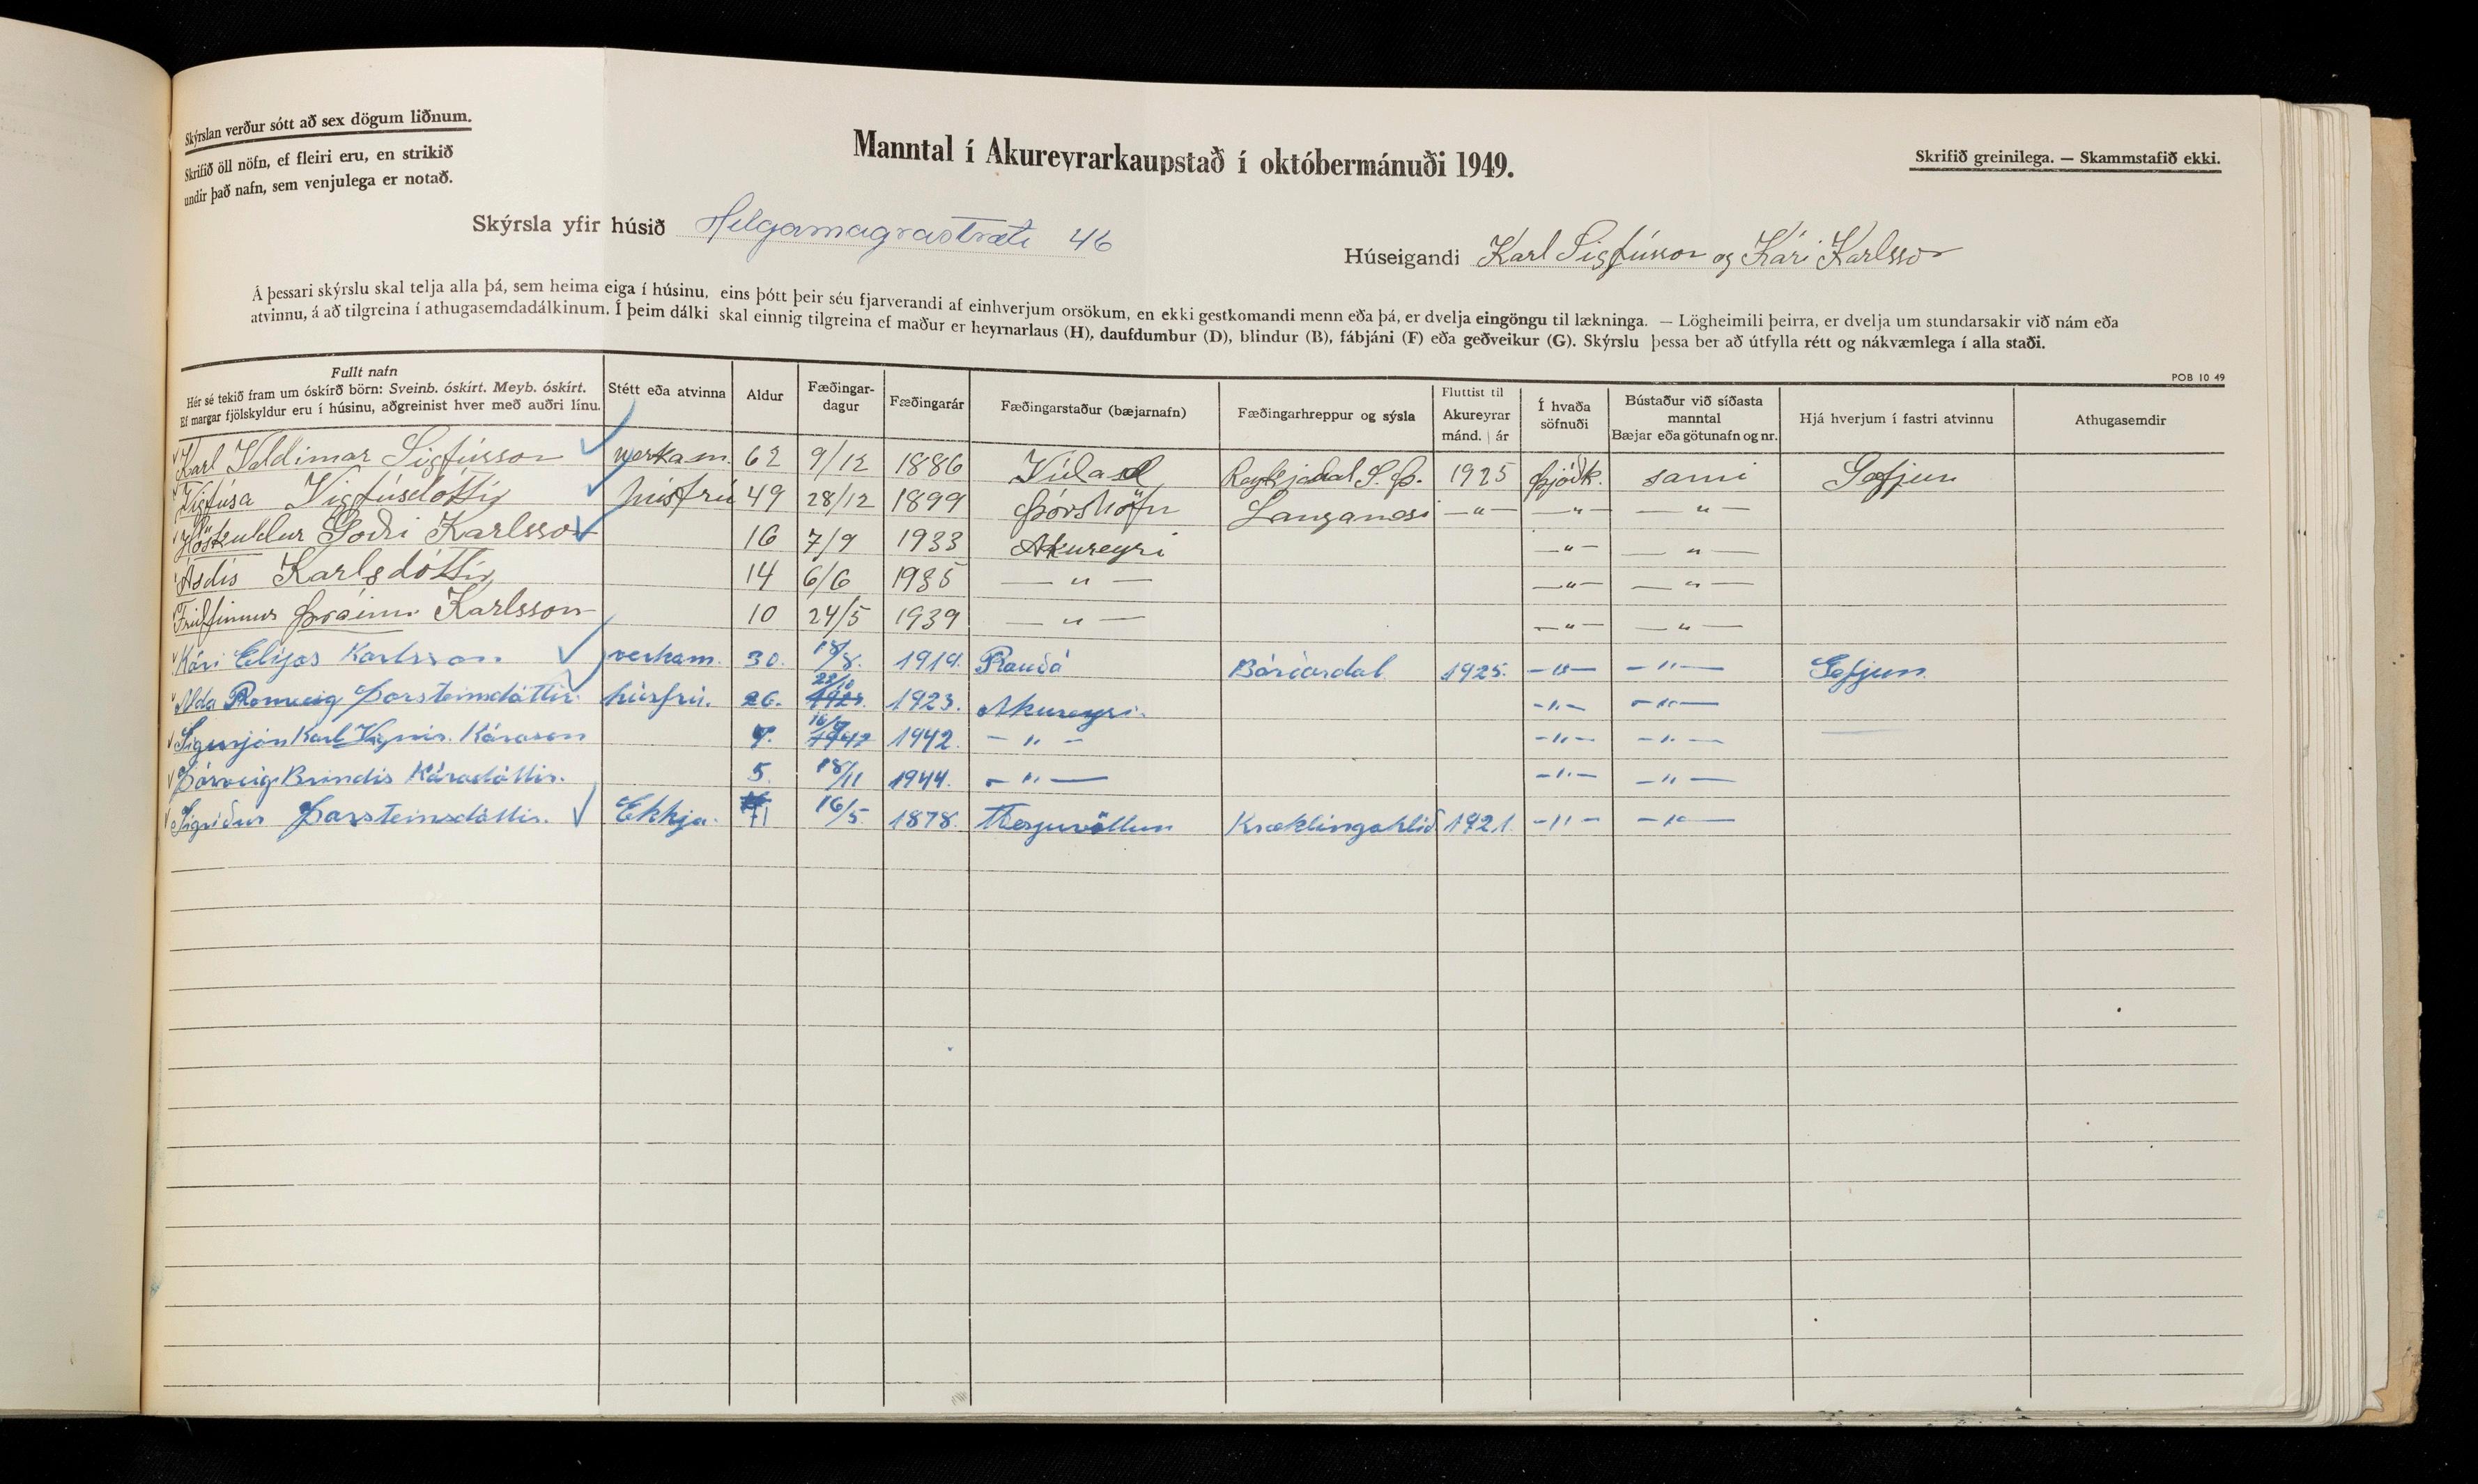 Skýrslan verður sótt að sex dögum liðnum.
Skrifið öll nöfn, ef fleiri eru, en strikið
undir það nafn, sem venjulega er notað.
Manntal í Akureyrarkaupstað í októbermánuði 1949.
Skrifið greinilega. — Skammstafið ekki.
Skýrsla yfir húsið Helgamagrastræti 46
Húseigandi Karl Sigfússon og Kári Karlsson
Á þessari skýrslu skal telja alla þá, sem heima eiga í húsinu, eins þótt þeir séu fjarverandi af einhverjum orsökum, en ekki gestkomandi menn eða þá, er dvelja eingöngu til lækninga. — Lögheimili þeirra, er dvelja um stundarsakir við nám eða
atvinnu, á að tilgreina í athugasemdadálkinum. Í þeim dálki skal einnig tilgreina ef maður er heyrnarlaus (H), daufdumbur (D), blindur (B), fábjáni (F) eða geðveikur (G). Skýrslu þessa ber að útfylla rétt og nákvæmlega í alla staði.
POB 10 49
Fullt nafn
Hér sé tekið fram um óskírð börn: Sveinb. óskírt. Meyb. óskírt.
Ef margar fjölskyldur eru í húsinu, aðgreinist hver með auðri línu.
Stétt eða atvinna
Aldur
Fæðingar-
dagur
Fæðingarár
Fæðingarstaður (bæjarnafn)
Fæðingarhreppur og sýsla
Fluttist til
Akureyrar
mánd. | ár
Í hvaða
söfnuði
Bústaður við síðasta
manntal
Bæjar eða götunafn og nr.
Hjá hverjum í fastri atvinnu
Athugasemdir
Karl Valdimar Sigfússon verkam. 62 9/12 1886 Reykjadal S.Þ. 1925 þjóðk. sami Gefjun
Vigfúsa Vigfúsdóttir húsfrú 49 28/12 1899 Þórshöfn Langanesi —"— —"— —"—
Höskuldur Goði Karlsson 16 7/9 1933 Akureyri —"— —"—
Ásdís Karlsdóttir 14 6/6 1935 —"— —"— —"—
Friðfinnur Þráinn Karlsson 10 24/5 1939 —"— —"— —"—
Kári Elías Karlsson verkam. 30. 18/8. 1919. Rauðá Bárðardal 1925. —"— —"— Gefjun.
Alda Rannveig Þorsteinsdóttir. húsfrú. 26. 22/10 1923. Akureyri. —"— —"—
Sigurjón Karl Vignir. Kárason 7. 16/7 1942. —"— —"— —"—
Þórveig Bryndís Káradóttir. 5. 18/11 1944. —"— —"— —"—
Sigríður Þorsteinsdóttir. Ekkja. 71 16/5 1878. Kræklingahlíð 1921. —"— —"—